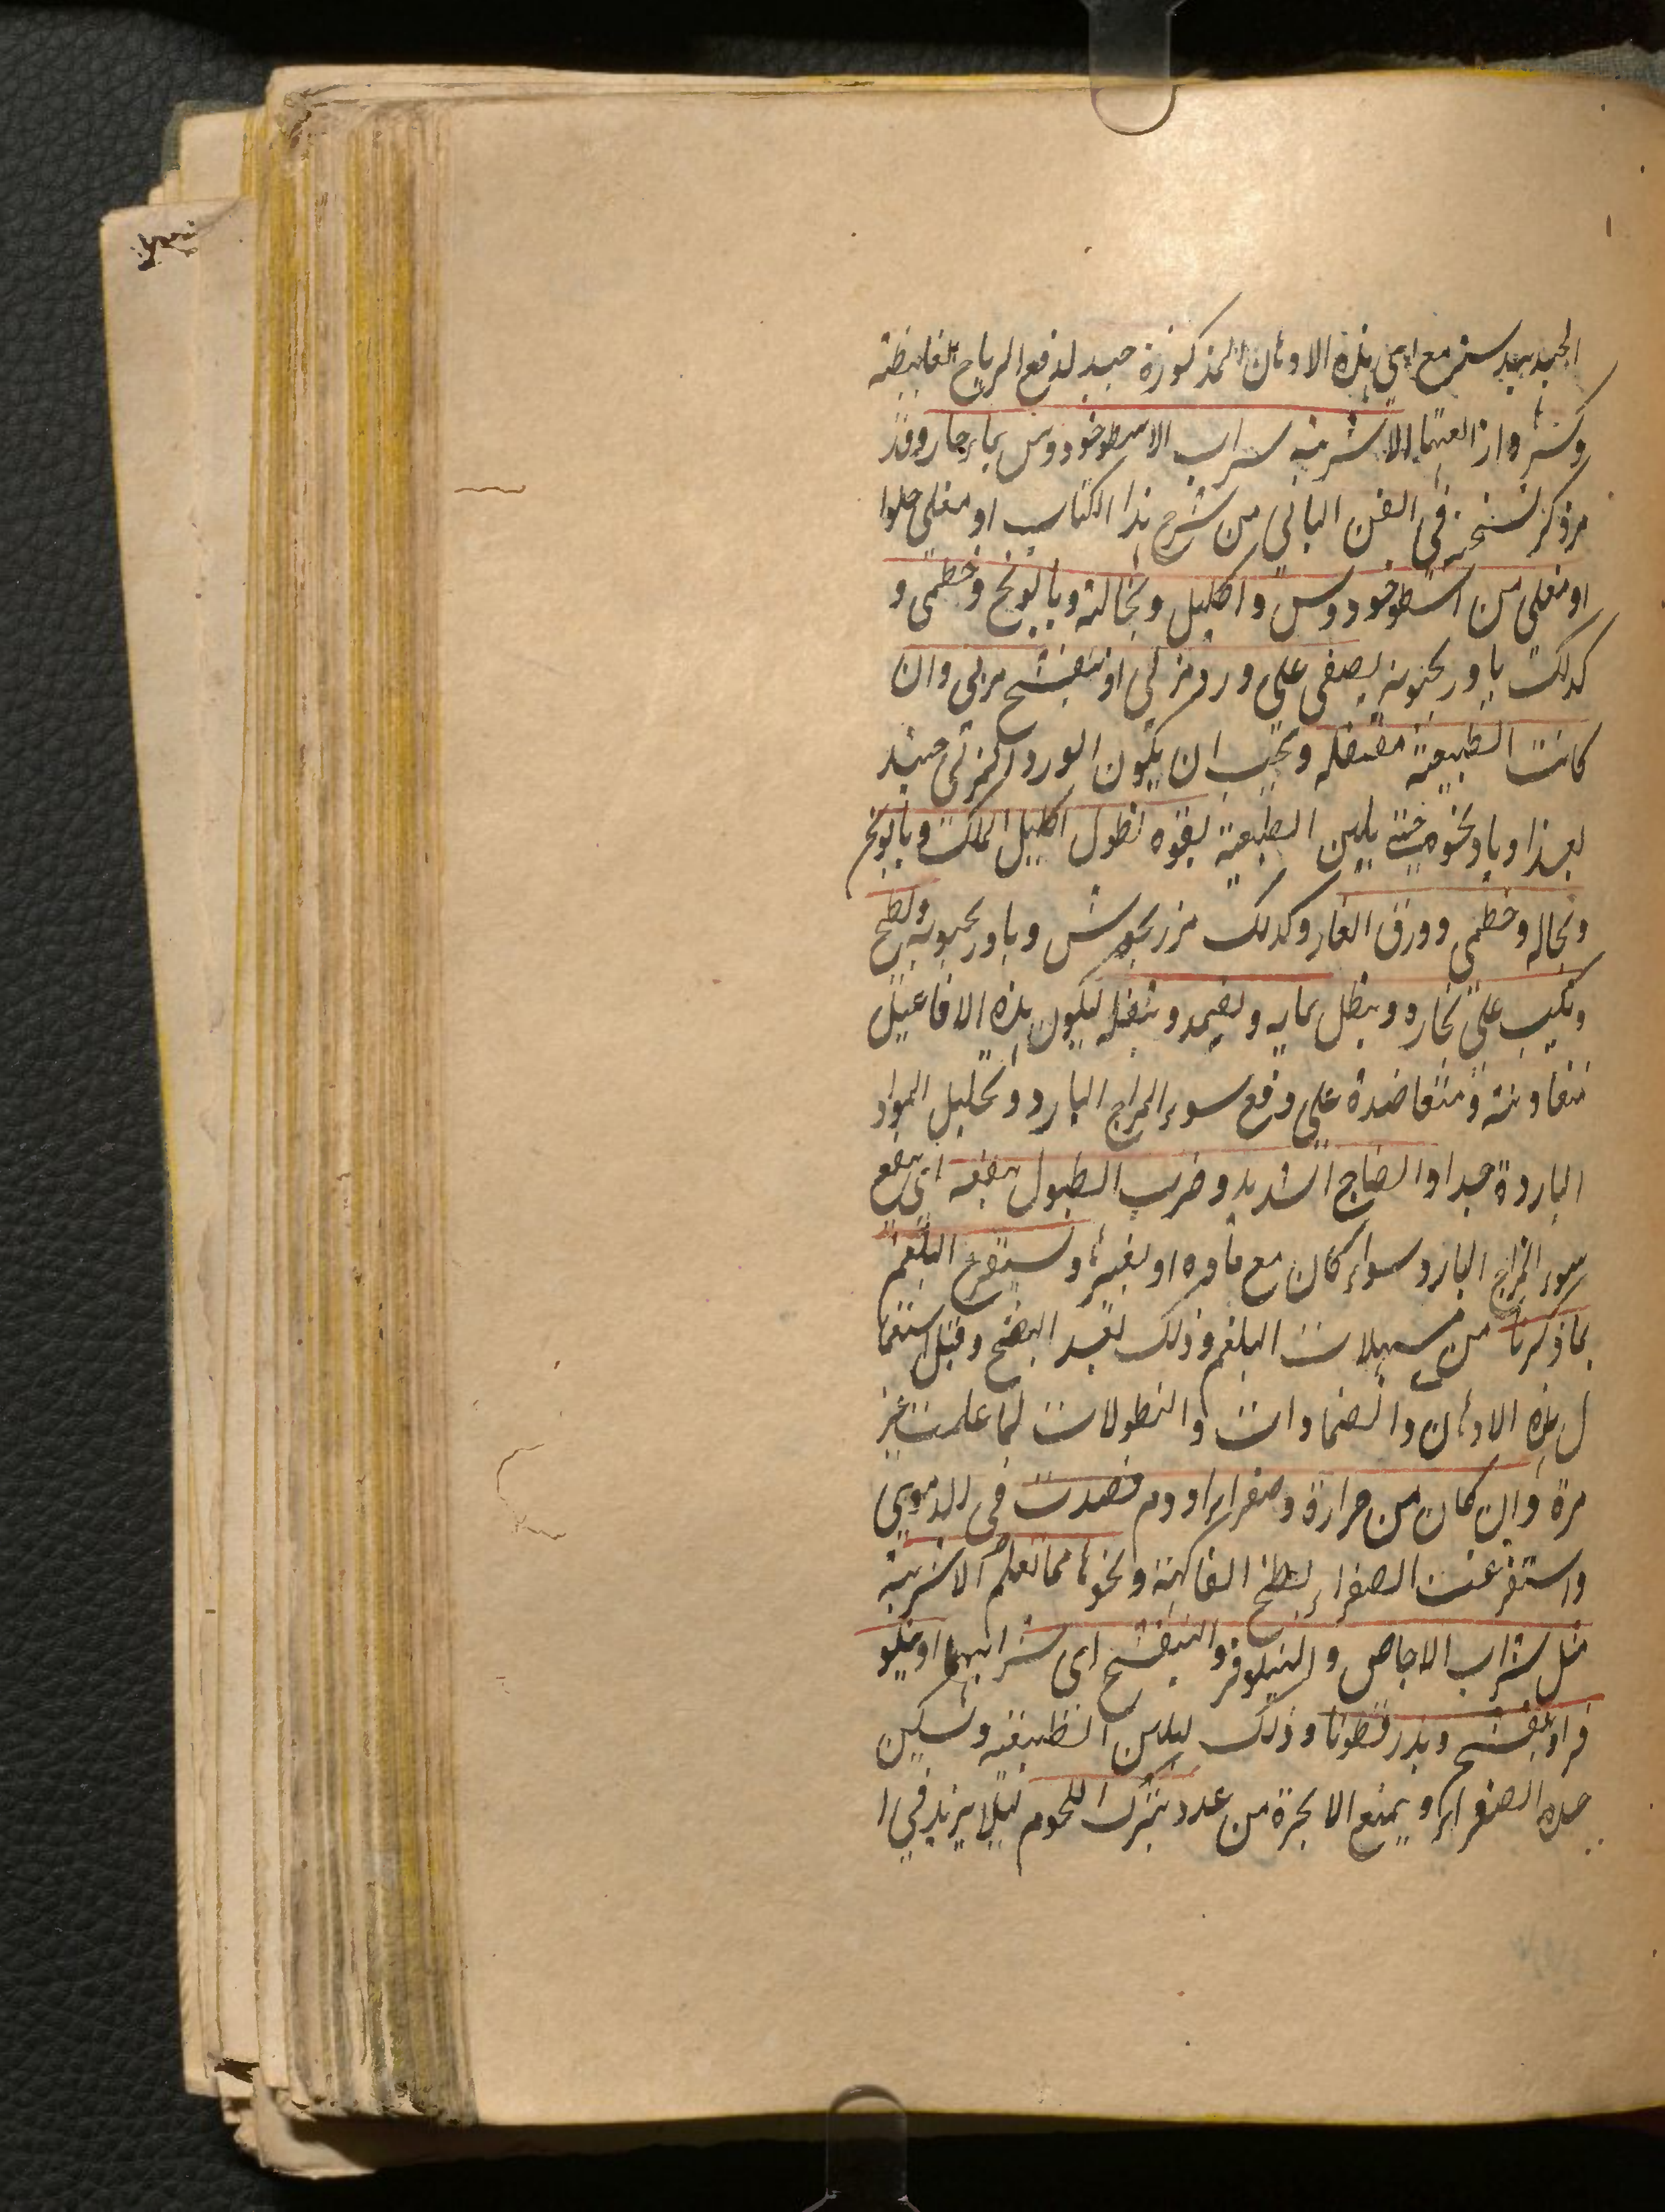 الجندبيدستر مع اي هذه الادهان المذكورة جيد لدفع الرياح الغليظة
وكسرها وازالتها الاشربة شراب الاسطوخودوس بماء حار وقد
مر ذكر نسخته في الفن الثاني من شرح هذا الكتاب او مغلي حلوا
او مغلي من اسطوخودوس واكليل ونخالة وبابونج وخطمي و
كذلك بادرنجبويه يصفى على ورد منزلي او بنفسج مربى وان
كانت الطبيعة معتقله ويجب ان يكون الورد المنزلي حينئذ
حتى يلين الطبيعة بقوه نطول اكليل الملك وبابونج
ونخاله وخطمي وورق الغار وكذلك مرزنجوش وبادرنجبويه يطبخ
ويكب على بخاره وينطل بمايه ويضمد بثفله ليكون هذه الافاعيل
متعاونة ومتعاضدة على دفع سوء المزاج البارد وتحليل المواد
الباردة جدا والصياح الشديد وضرب الطبول ينفعه اي ينفع
سوء المزاج البارد سواء كان مع مادة او بغيرها ويستفرغ البلغم
بما ذكرنا من مسهلات البلغم وذلك بعد النضج وقبل استعما
ل هذه الادهان والضمادات والنطولات لما علمت غير
مرة وان كان من حرارة وصفراء او دم فصدت في الدموي
واستفرغت الصفراء بطبخ الفاكهة ونحوها مما تعلم الاشربة
مثل شراب الاجاص والنيلوفر والبنفسج اي شرابهما او نيلو
فر او بنفسج وبذر قطونا وذلك ليلين الطبيعة وتسكين
حده الصفراء ويمنع الابخرة من بترك اللحوم ليلا يزيد في ا